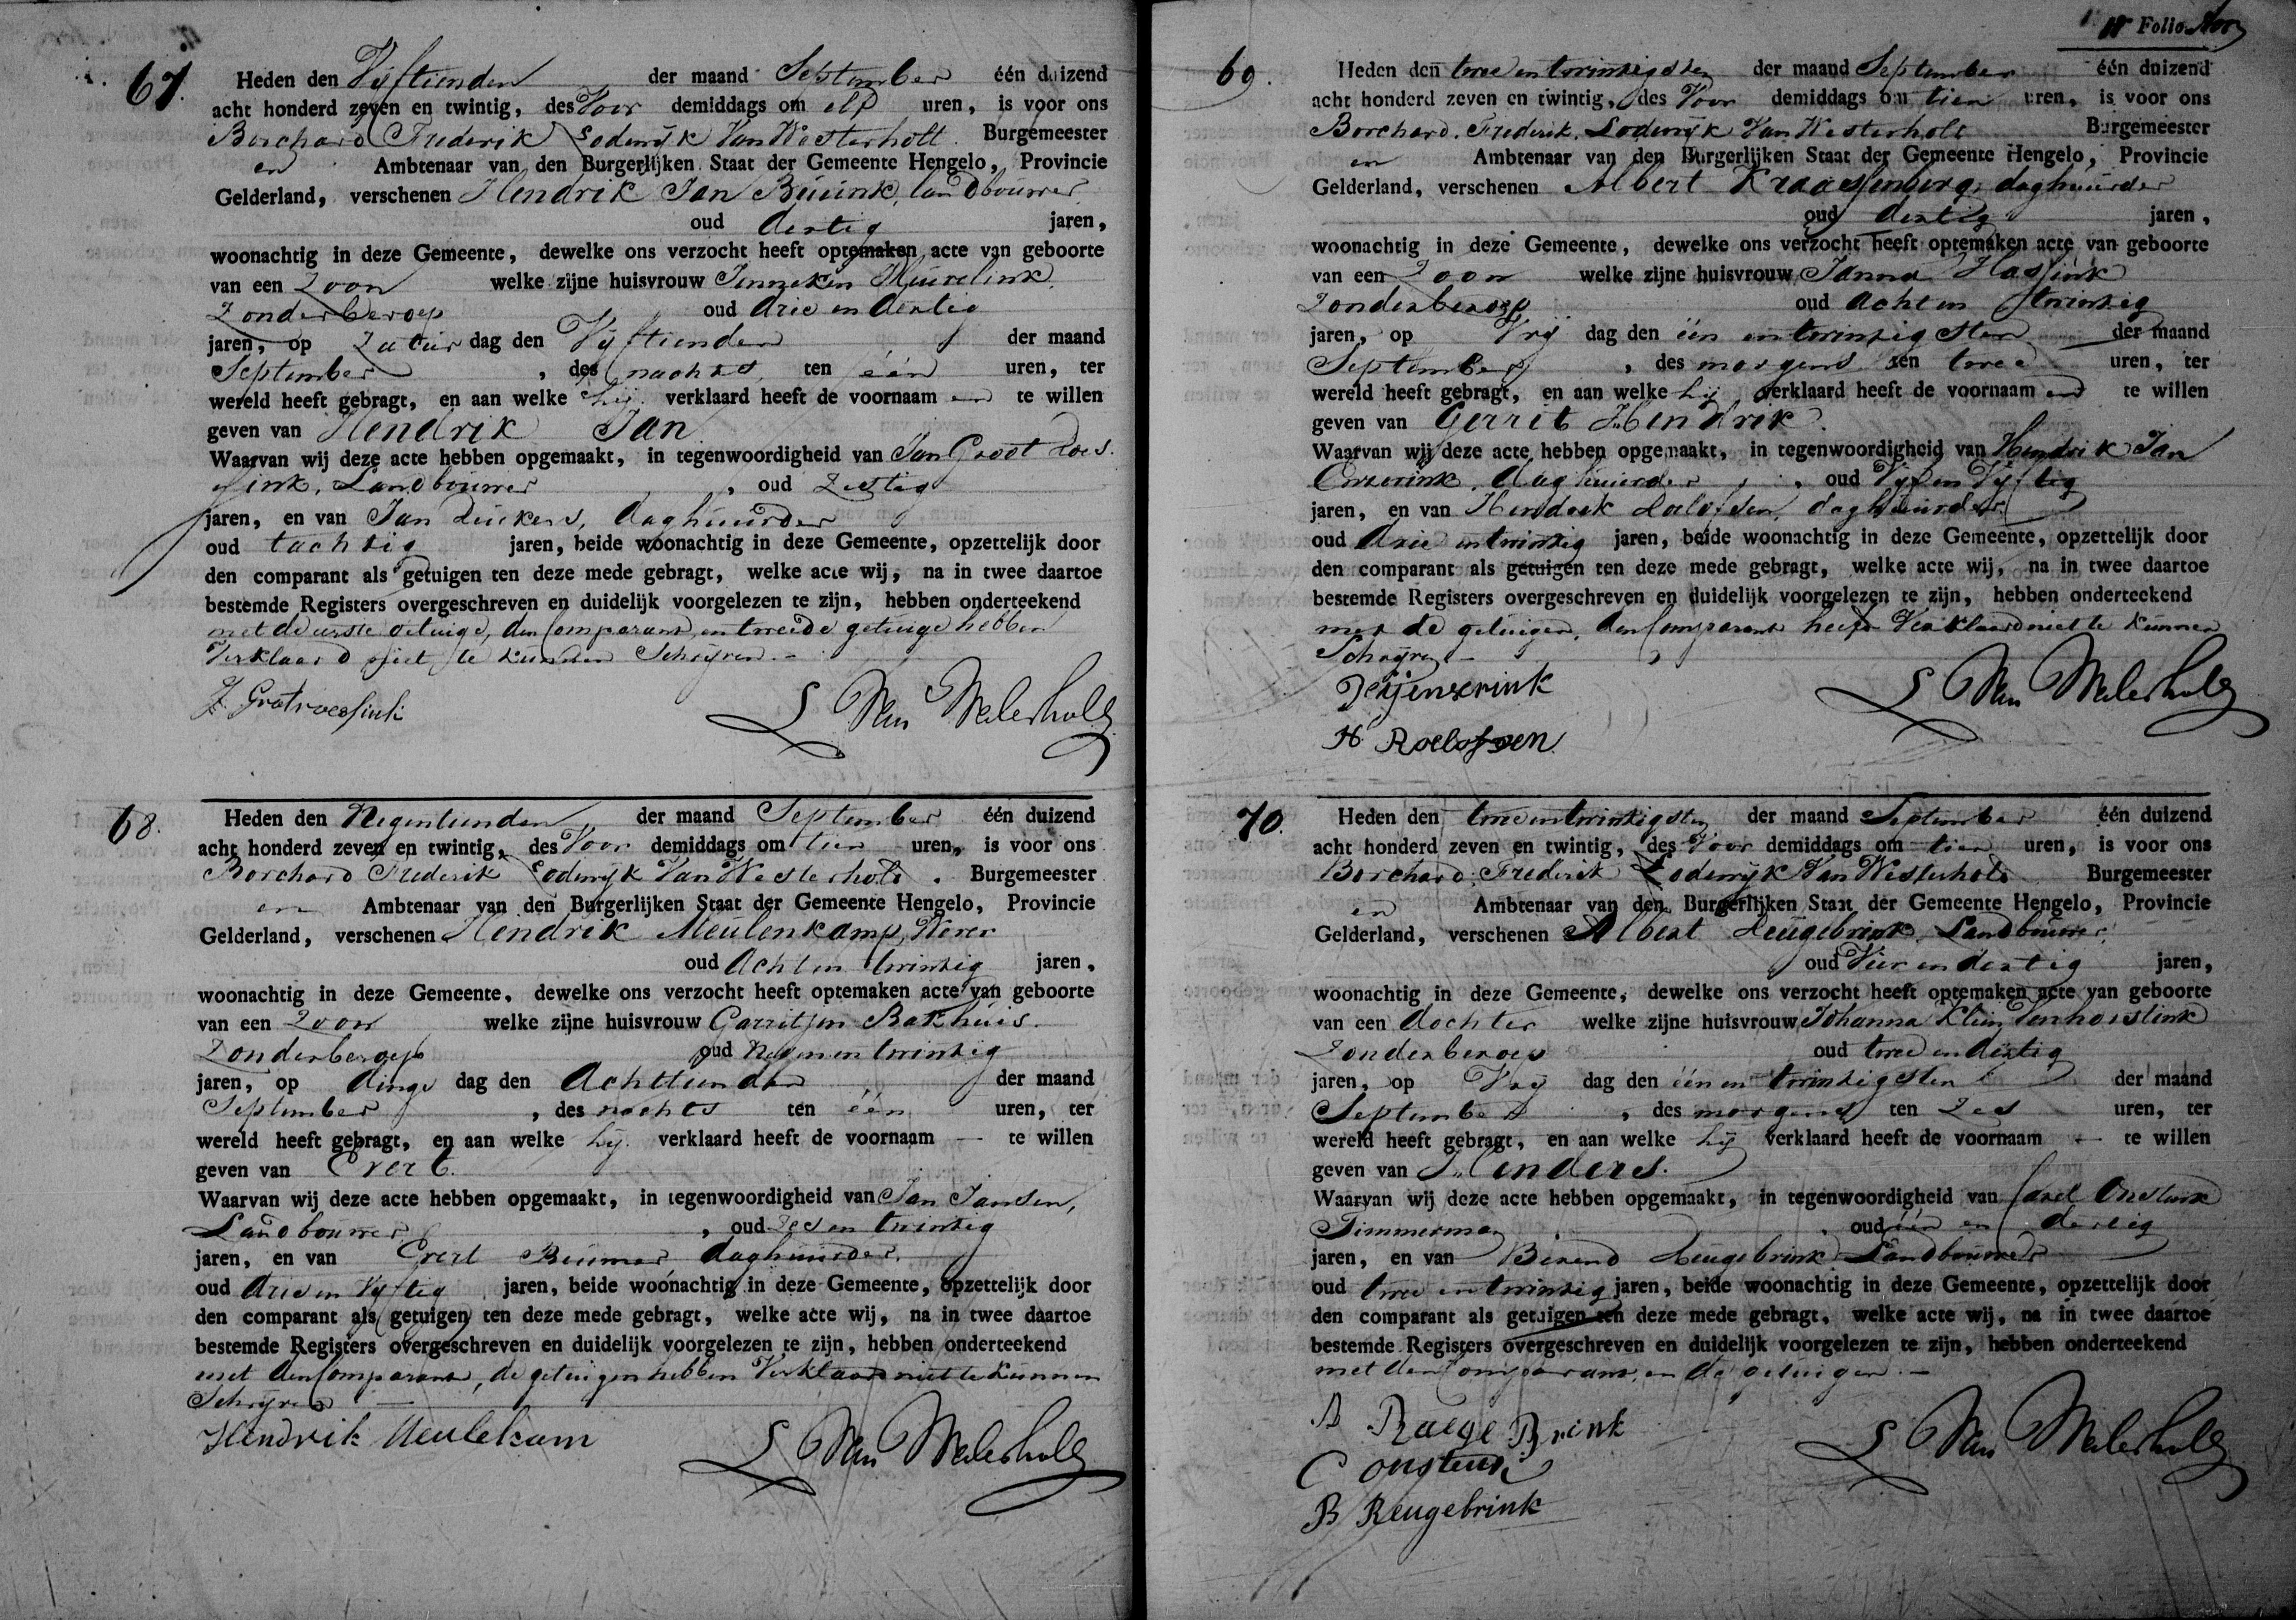 67.
Heden den Vijftienden der maand September één duizend
acht honderd zeven en twintig, des Voor demiddags om elf uren, is voor ons
Borchard Frederik Lodewijk Van Westerholt Burgemeester
en Ambtenaar van den Burgerlijken Staat der Gemeente Hengelo, Provincie
Gelderland, verschenen Hendrik Jan landbouwer
oud dertig jaren,
woonachtig in deze Gemeente, dewelke ons verzocht heeft optemaken acte van geboorte
van een Zoon welke zijne huisvrouw Jenneken
Zonder beroep oud drie en dertig
jaren, op Zatur dag den Vijftienden der maand
September, des nachts ten één uren, ter
wereld heeft gebragt, en aan welke hij verklaard heeft de voornaam en te willen
geven van Hendrik Jan
Waarvan wij deze acte hebben opgemaakt, in tegenwoordigheid van Jan Groot Roes
sink, Landbouwer, oud Zestig
jaren, en van Jan daghuurder
oud tachtig jaren, beide woonachtig in deze Gemeente, opzettelijk door
den comparant als getuigen ten deze mede gebragt, welke acte wij, na in twee daartoe
bestemde Registers overgeschreven en duidelijk voorgelezen te zijn, hebben onderteekend
met de eerste getuige, den Comparant, en tweede getuige hebben
Verklaard niet te kunnen Schrijven.-
L Van Westerholt
68.
Heden den Negentienden der maand September één duizend
acht honderd zeven en twintig, des Voor demiddags om tien uren, is voor ons
Borchard Frederik Lodewijk Van Westerholt. Burgemeester
en Ambtenaar van den Burgerlijken Staat der Gemeente Hengelo, Provincie
Gelderland, verschenen Hendrik Meulenkamp, Wever
oud Acht en twintig jaren,
woonachtig in deze Gemeente, dewelke ons verzocht heeft optemaken acte van geboorte
van een Zoon welke zijne huisvrouw Garritjen Bakhuis.
Zonder beroep oud Negen en twintig
jaren, op dings dag den Achttienden der maand
September, des nachts ten één uren, ter
wereld heeft gebragt, en aan welke hij verklaard heeft de voornaam — te willen
geven van Evert.
Waarvan wij deze acte hebben opgemaakt, in tegenwoordigheid van Jan Jansen,
Landbouwer, oud Zes en twintig
jaren, en van Evert Beumer daghuurder,
oud drie en Vijftig jaren, beide woonachtig in deze Gemeente, opzettelijk door
den comparant als getuigen ten deze mede gebragt, welke acte wij, na in twee daartoe
bestemde Registers overgeschreven en duidelijk voorgelezen te zijn, hebben onderteekend
met den Comparant, de getuigen hebben Verklaard niet te kunnen
Schrijven —
Hendrik Meulekam
L Van Westerholt
Folio
69.
Heden den twee en twintigsten der maand September één duizend
acht honderd zeven en twintig, des Voor demiddags om tien uren, is voor ons
Borchard Frederik Lodewijk Van Westerholt Burgemeester
en Ambtenaar van den Burgerlijken Staat der Gemeente Hengelo, Provincie
Gelderland, verschenen Albert Kraassenberg, daghuurder
oud dertig jaren,
woonachtig in deze Gemeente, dewelke ons verzocht heeft optemaken acte van geboorte
van een Zoon welke zijne huisvrouw Janna Hassink
Zonder beroep oud acht en twintig
jaren, op Vrij dag den één en twintigsten der maand
September, des morgens ten twee uren, ter
wereld heeft gebragt, en aan welke hij verklaard heeft de voornaam en te willen
geven van Gerrit Hendrik.
Waarvan wij deze acte hebben opgemaakt, in tegenwoordigheid van Hendrik Jan
daghuurder, oud Vijf en Vijftig
jaren, en van Hendrik Roelofsen, daghuurder
oud drie en twintig jaren, beide woonachtig in deze Gemeente, opzettelijk door
den comparant als getuigen ten deze mede gebragt, welke acte wij, na in twee daartoe
bestemde Registers overgeschreven en duidelijk voorgelezen te zijn, hebben onderteekend
met de getuigen, den Comparant heeft Verklaard niet te kunnen
Schrijven -
H Roelofsen
L Van Westerholt
70.
Heden den twee en twintigsten der maand September één duizend
acht honderd zeven en twintig, des Voor demiddags om tien uren, is voor ons
Borchard Frederik Lodewijk Van Westerholt Burgemeester
en Ambtenaar van den Burgerlijken Staat der Gemeente Hengelo, Provincie
Gelderland, verschenen Albert Reugebrink Landbouwer,
oud Vier en dertig jaren,
woonachtig in deze Gemeente, dewelke ons verzocht heeft optemaken acte van geboorte
van een dochter welke zijne huisvrouw Johanna Klein
Zonder beroep oud twee en dertig
jaren, op Vrij dag den één en twintigsten der maand
September, des morgens ten Zes uren, ter
wereld heeft gebragt, en aan welke hij verklaard heeft de voornaam — te willen
geven van
Waarvan wij deze acte hebben opgemaakt, in tegenwoordigheid van Carel Onstenk
Timmerman, oud één en dertig
jaren, en van Berend Reugebrink Landbouwer
oud twee en twintig jaren, beide woonachtig in deze Gemeente, opzettelijk door
den comparant als getuigen ten deze mede gebragt, welke acte wij, na in twee daartoe
bestemde Registers overgeschreven en duidelijk voorgelezen te zijn, hebben onderteekend
met den Comparant, en de getuigen. —
A Raege Brink
C Onstenk
B Reugebrink
L Van Westerholt